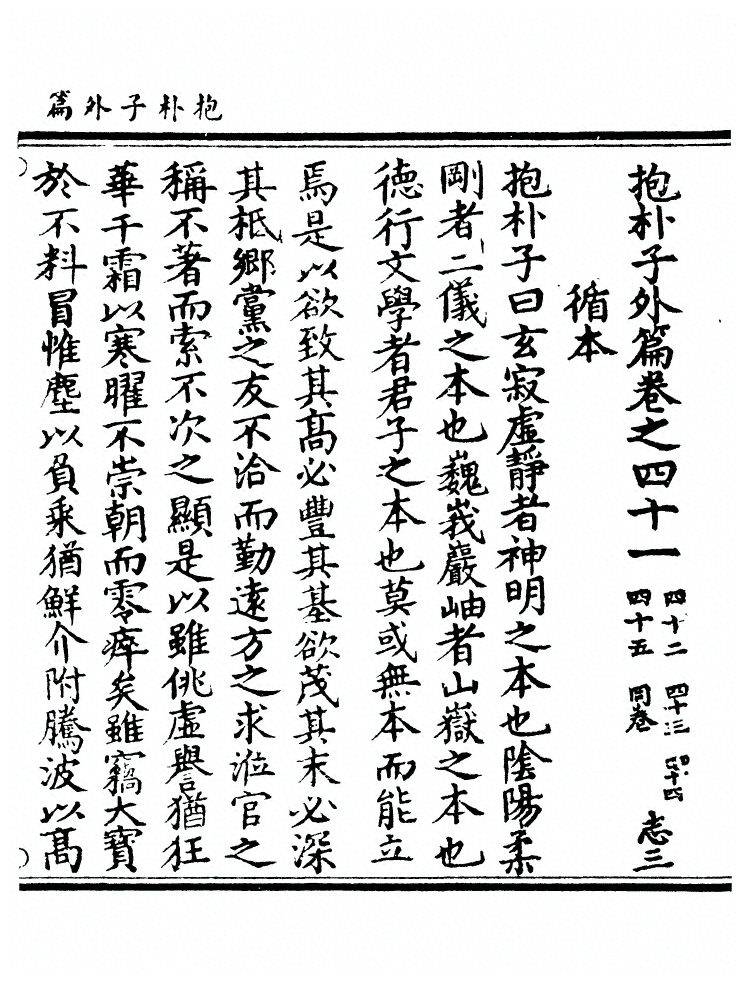 抱朴子外篇
抱朴子外篇卷之四十一 四十二 四十三 四十四 四十五 同卷 志三
循本
抱朴子曰玄寂虛靜者神明之本也陰陽柔
剛者二儀之本也巍峩巖岫者山嶽之本也
德行文學者君子之本也莫或無本而能立
焉是以欲致其髙必豐其基欲茂其末必深
其柢鄉黨之友不洽而勤逺方之求涖官之
稱不著而索不次之顯是以雖佻虛譽猶狂
華干霜以寒曜不崇朝而零瘁矣雖竊大寶
於不料冒惟塵以負乘猶鮮介附騰波以髙